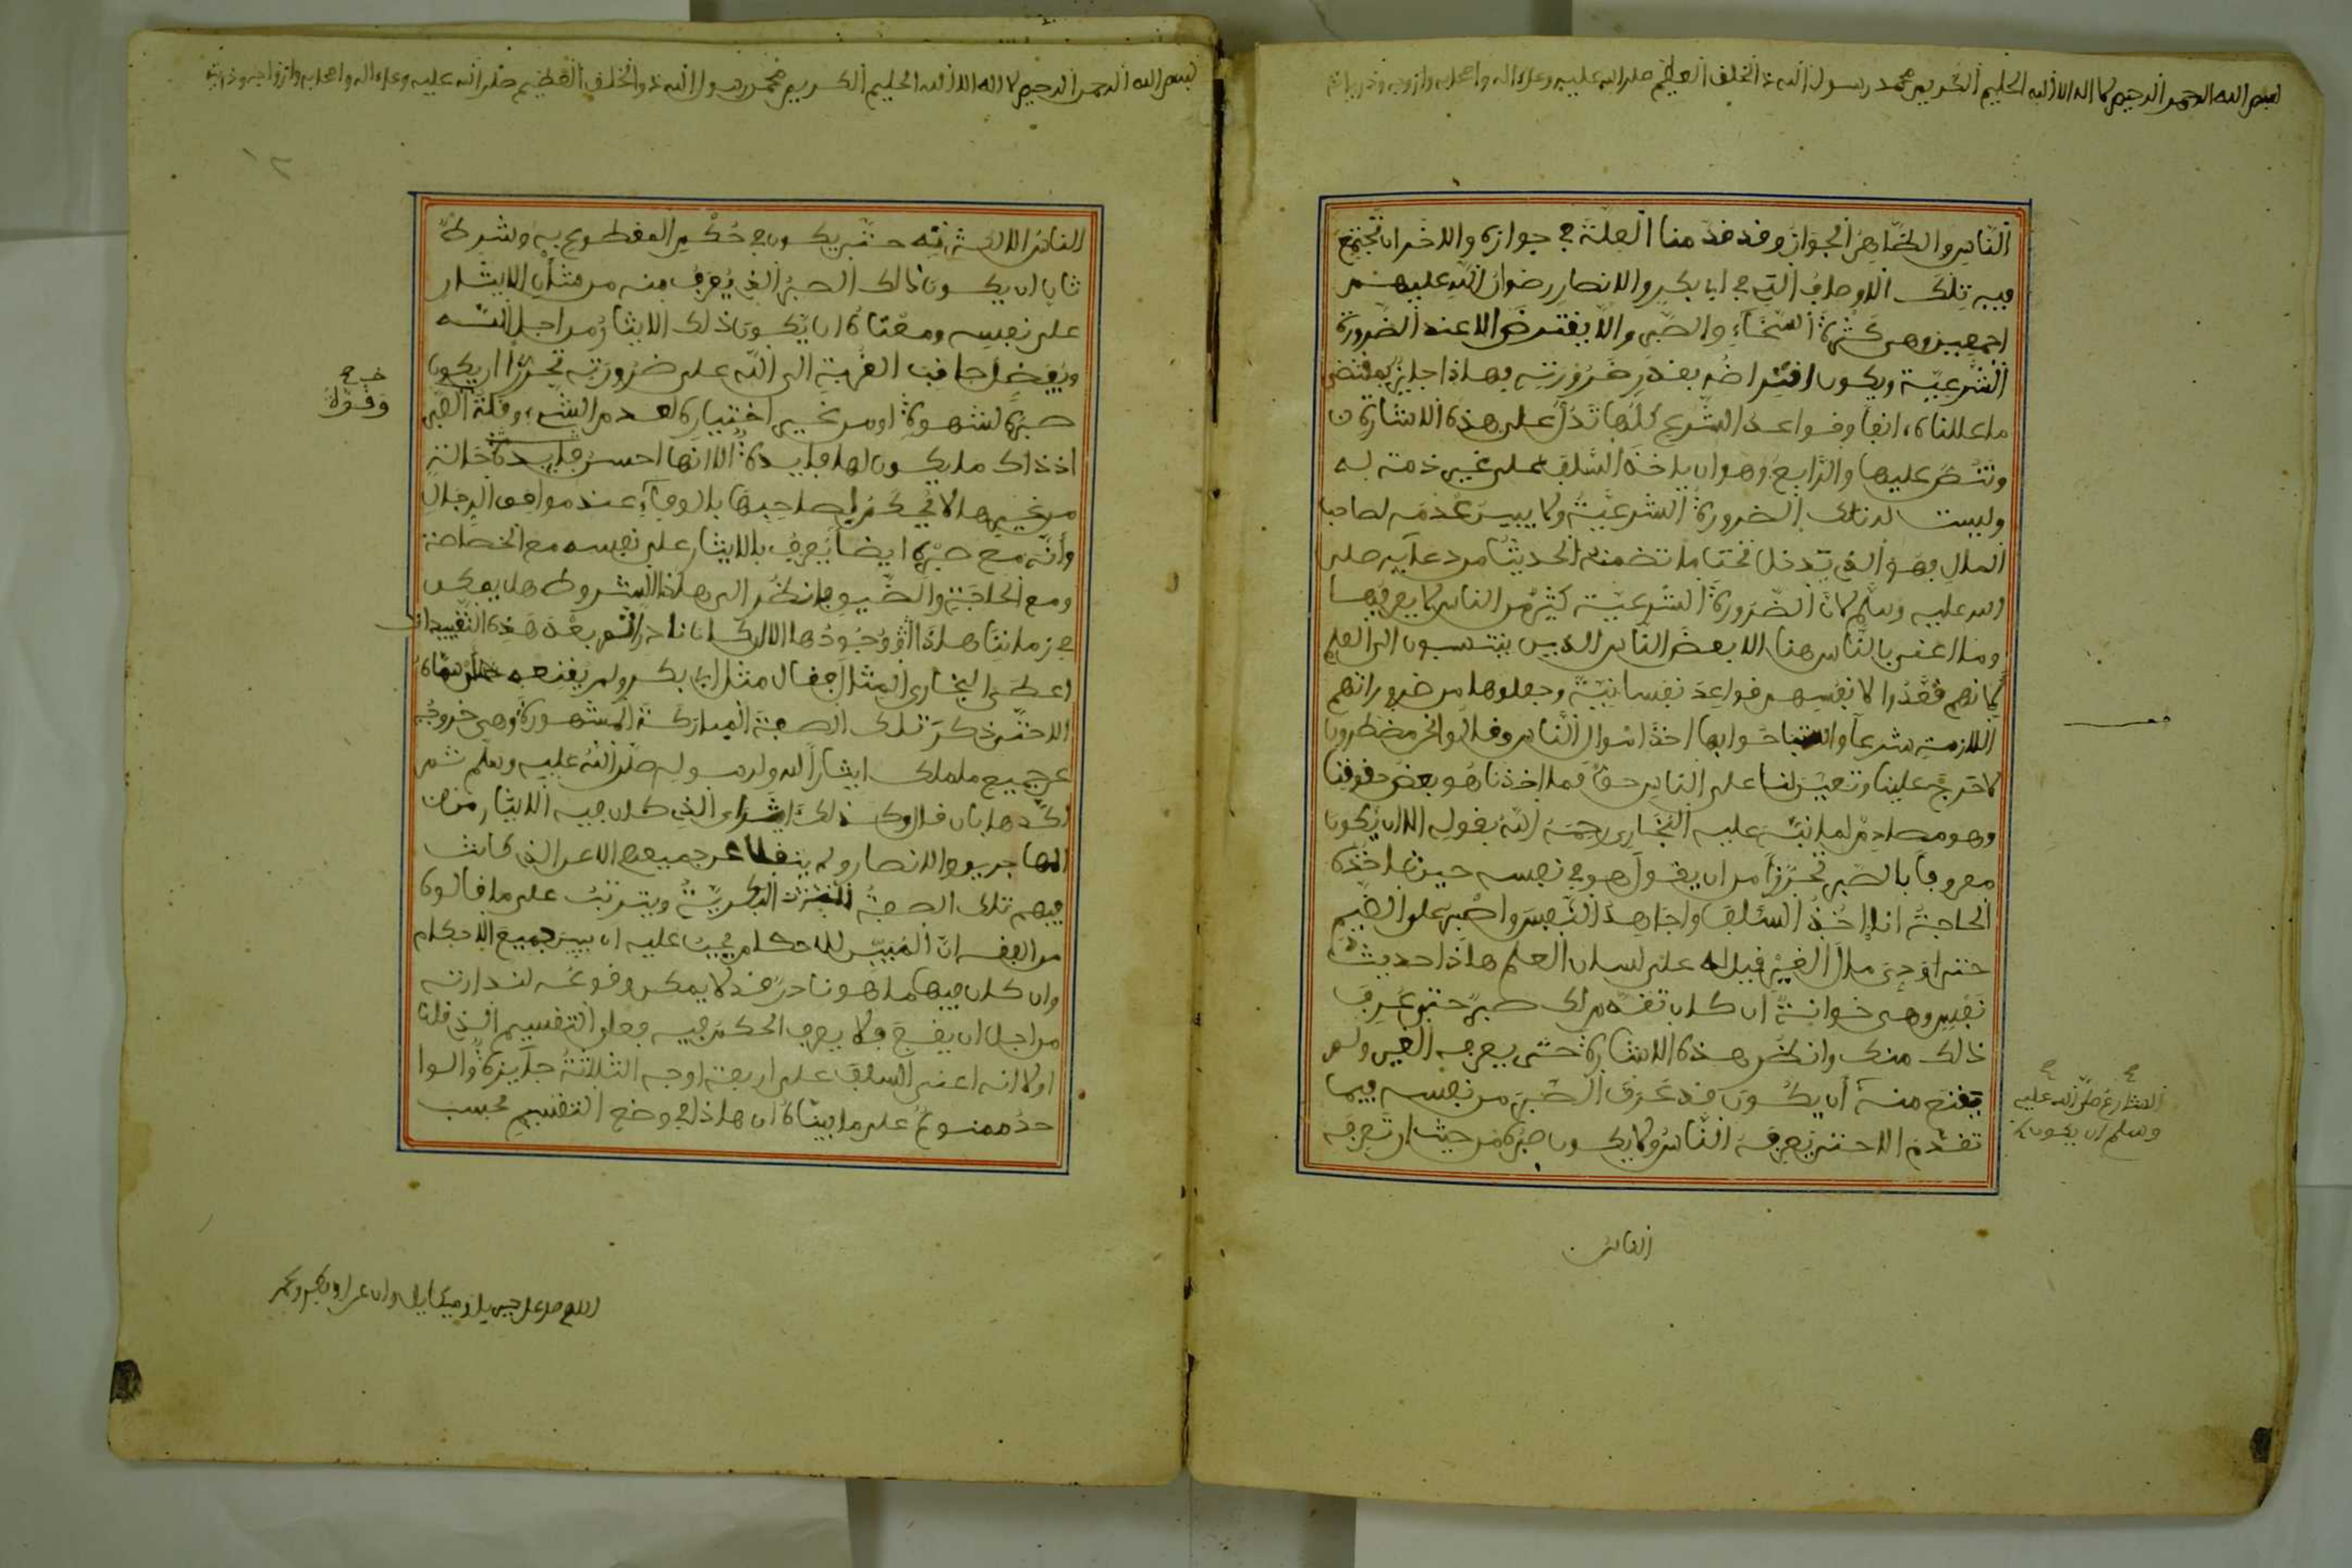 بسم الله الرحمن الرحيم لا اله الا الله الحليم الكريم محمد رسول الله ذو الخلق العظيم صلى الله عليه وعلى اله واصحابه وازواجه وذريته
الناس والظاهر الجواز وقد قدمنا العلة في جوازه والاخر ان تجتمع
فيه تلك الاوصاف التي في ابي بكر والانصار رضوان الله عليهم
اجمعين وهي كثرة السخاء والصبر والا يفترض الا عند الضرورة
الشرعية ويكون افتراضه بقدر ضرورته فهاذا جايز بمقتضى
ما عللناه انفا وقواعد الشرع كلها تدل على هذه الاشارة
وتنص عليها والرابع وهو ان ياخذ السلف على غير ذمة له
وليست له تلك الضرورة الشرعية ولا يبين عدمه لصاحب
المال فهو الذي يدخل تحت ما تضمنه الحديث من دعايه صلى
الله عليه وسلم لان الضرورة الشرعية كثير من الناس لا يعرفها
وما اعني بالناس هنا الا بعض الناس الذين ينتسبون الى العلم
لانهم قعدوا لانفسهم قواعد نفسانية وجعلوها من ضروراتهم
اللازمة شرعا واستباحوا بها اخذ اموال الناس وقالوا نحن مضطرون
لا حرج علينا وتعين لنا على الناس حق فما اخذناه هو بعض حقوقنا
وهو مصادم لما نبه عليه البخاري رحمه الله بقوله الا ان يكون
معروفا بالصبر تحرزا من ان يقول هو في نفسه حين تاخذه
الحاجة انا اخذ السلف واجاهد النفس واصبر على الضيم
حتى اودي مال الغير فقيل له على لسان العلم هاذا حديث
نفس وهي خوانة ان كان تقدم لك صبر حتى عرف
ذلك منك وانظر هذه الاشارة حتى يعرفه الغير ولم
يقنع منه ان يكون قد عرف الصبر من نفسه فيما
تقدم الا حتى يعرفه الناس ولا يكون صبره من حيث ان تعرفه
الشارع صلى الله عليه
وسلم ان يكون
الناس
بسم الله الرحمن الرحيم لا اله الا الله الحليم الكريم محمد رسول الله ذو الخلق العظيم صلى الله عليه وعلى اله واصحابه وازواجه وذريته
١٢
الناس الا لكثرته حتى يكون في حكم المقطوع به وشرط
ثان ان يكون ذالك الصبر الذي يعرف منه من شان الايثار
على نفسه ومعناه ان يكون ذلك الايثار من اجل الله
ويفضل جانب القربة الى الله على ضرورته تحرزا ان يكون
صبره لشهوة او من غير اختياره لعدم الشيء وقلة الصبر
اذ ذاك ما يكون لها فايدة الا انها احسن فايدة حالته
من غيرها لا في لصاحبها بالوفاء عند موافق الرجال
وانه مع صبره ايضا يعرف بالايثار على نفسه مع الخصاصة
ومع الحاجة والضيق فانظر الى هاذه الشروط هل يمكن
في زماننا هاذا وجودها الا ان كان نادرا ثم بعد هذه التقييدات
اعطى البخاري المثل فقال مثل ابي بكر ولم يقنعه
الا حتى ذكر تلك الصفة المباركة المشهورة وهي خروجه
عن جميع ما ملك ايثارا لله ولرسوله صلى الله عليه وسلم ثم
اكدها بان قال وكذلك اشار الى الذي كان فيه الايثار من
المهاجرين والانصار ولم ينقلا عن جميعهم الا عن الذي كانت
فيهم تلك الصفة البكرية ويترتب على ما قالوه
من الفقه ان المبين للاحكام يجب عليه ان يبين جميع الاحكام
وان كان فيها ما هو نادر قد لا يمكن وقوعه لندارته
من اجل ان يقع ولا يعرف الحكم فيه فعلى التقسيم الذي قلنا
اولا انه اعني السلف على اربعة اوجه الثلاثة جايزة والوا
حد ممنوع على ما بيناه ان هاذا في وضع التقسيم بحسب
وقوة
اللهم صل على جبريل وميكايل وابي بكر وعمر